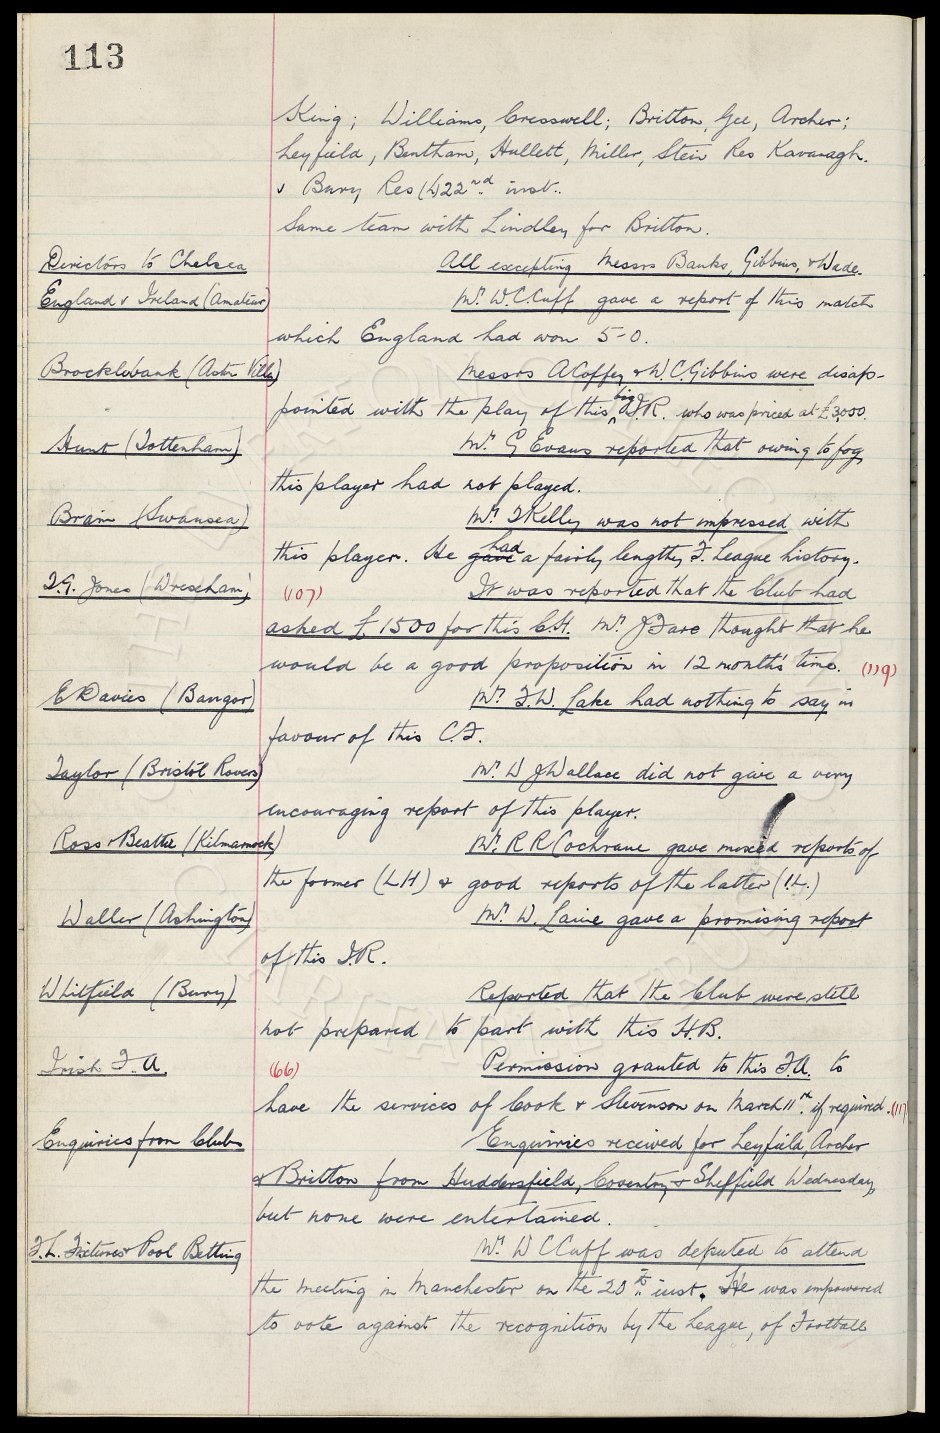 113
King; Williams, Cresswell; Britton, Gee, Archer;
Leyfield, Bentham, Hullett, Miller, Stein Res Kavanagh.
v Bury Res (h) 22nd inst..
Same team with Lindley for Britton.
Directors to Chelsea All excepting Messrs Banks, Gibbins, & Wade.
England v Ireland (Amateur) Mr. W.C. Cuff gave a report of this match
which England had won 5-0.
Brocklebank (Aston Villa) Messrs A Coffey & W.C. Gibbins were disap-
pointed with the play of this big I.R. who was priced at £3,000.
Hunt (Tottenham) Mr. G Evans reported that owing to fog
this player had not played.
Brain (Swansea) Mr. T Kelly was not impressed with
this player. He gave had a fairly lengthy F. League history.
T.G. Jones (Wrexham) (107) It was reported that the Club had
asked £1500 for this C.H. Mr. J Fare thought that he
would be a good proposition in 12 month's time. (119)
E Davies (Bangor) Mr. F.W. Lake had nothing to say in
favour of this C.F.
Taylor (Bristol Rovers) Mr. W J Wallace did not give a very
encouraging report of this player.
Ross & Beattie (Kilmarnock) Mr. R R Cochrane gave mixed reports of
the former (LH) & good reports of the latter (I.L.)
Waller (Ashington) Mr. W. Laine gave a promising report
of this I.R.
Whitfield (Bury) Reported that the Club were still
not prepared to part with this H.B.
Irish F.A. (66) Permission granted to this F.A. to
have the services of Cook & Stevenson on March 11th. if required. (117)
Enquiries from Clubs Enquiries received for Leyfield, Archer
& Britton from Huddersfield, Coventry & Sheffield Wednesday,
but none were entertained.
F.L. Fixtures & Pool Betting Mr. W C Cuff was deputed to attend
the meeting in Manchester on the 20th. inst. He was empowered
to vote against the recognition by the League, of Football